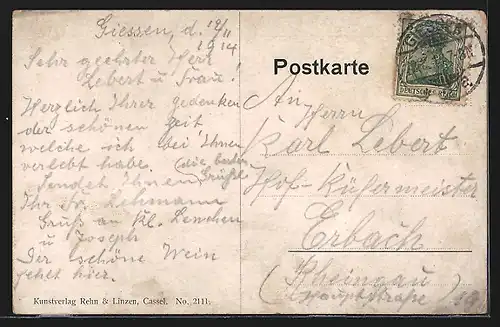 Giessen, d. 12/II
1914
Sehr geehrter Herr
Lebert u. Frau!
Herzlich Ihrer gedenken
der schönen Zeit,
welche ich bei Ihnen
verlebt habe. (die besten
Sendet Ihnen Grüße
Ihr Fr. Lehmann
Gruß an Kl. Lenchen
u Joseph
Der schöne Wein
fehlt hier.
Kunstverlag Rehn & Linzen, Cassel. No. 2111.
Postkarte
An
Herrn
Karl Lebert
Hof-Küfermeister
Erbach
(Rheingau
Hauptstraße)
DEUTSCHES REICH